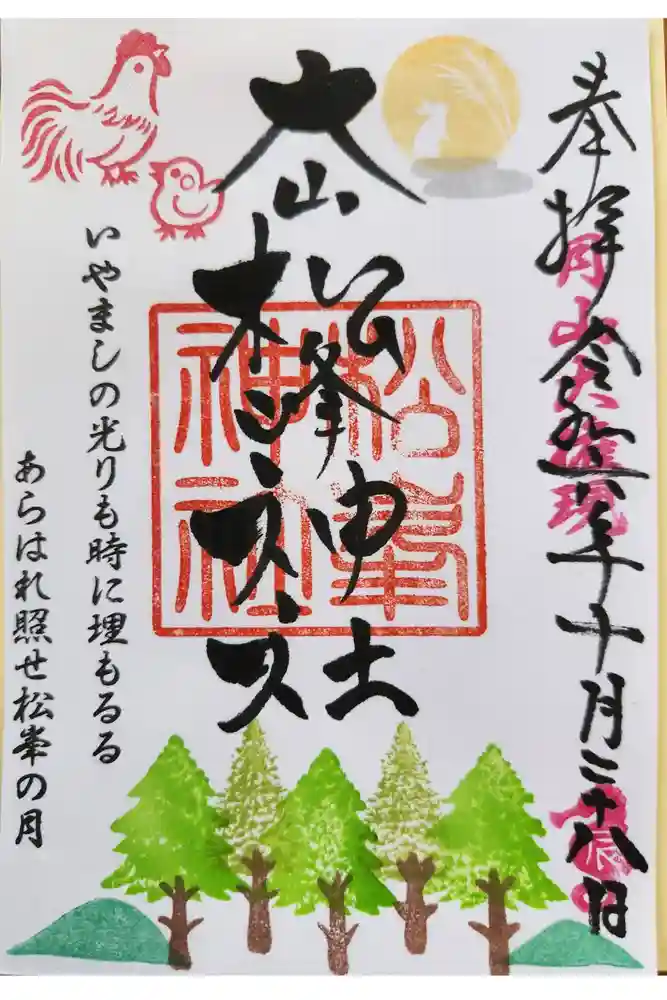 奉拝 令和六年十月二十八日
月山大権現
辰
大山
松峰神社
松峯神社
いやましの光りも時に埋もるる
あらはれ照せ松峯の月